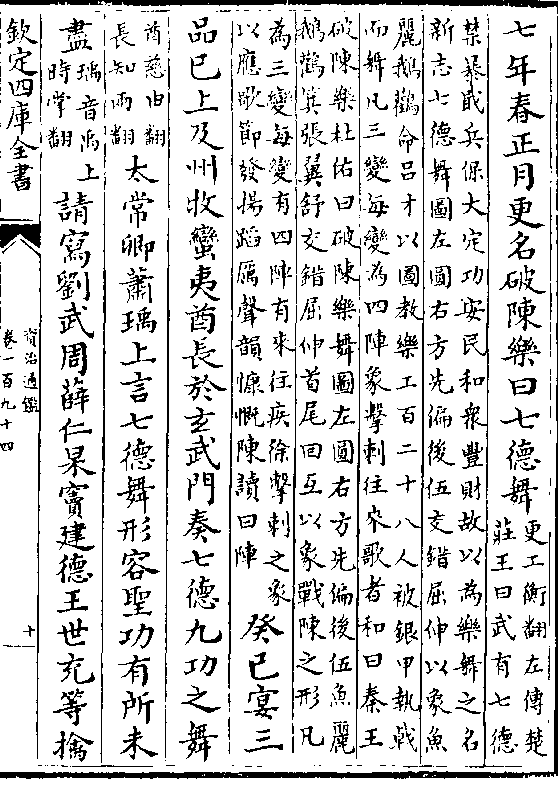 七年春正月更名破陳樂曰七德舞更工衡翻左傳楚莊王曰武有七德
禁暴戢兵保大定功安民和衆豐財故以為樂舞之名
新志七德舞圖左圓右方先偏後伍交錯屈伸以象魚
麗鵝鸛命呂才以圖教樂工百二十八人被銀甲執戟
而舞凡三變每變為四陣象擊刺往來歌者和曰秦王
破陳樂杜佑曰破陳樂舞圖左圓右方先偏後伍魚麗
鵝鸛箕張翼舒交錯屈伸首尾回互以象戰陳之形凡
為三變每變有四陣有來往疾徐擊刺之象
以應歌節發揚蹈厲聲韻慷慨陳讀曰陣
癸巳宴三
品已上及州牧蠻夷酋長於玄武門奏七德九功之舞
酋慈由翻
長知兩翻
太常卿蕭瑀上言七德舞形容聖功有所未
盡瑀音禹上
時掌翻
請寫劉武周薛仁杲竇建德王世充等擒
欽定四庫全書
資治通鑑
卷一百九十四
十